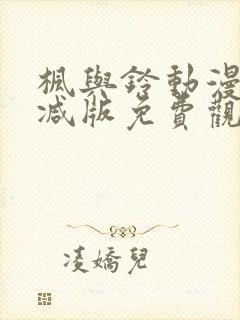 楓與鈴動漫
減版免費觀
凌嬌兒